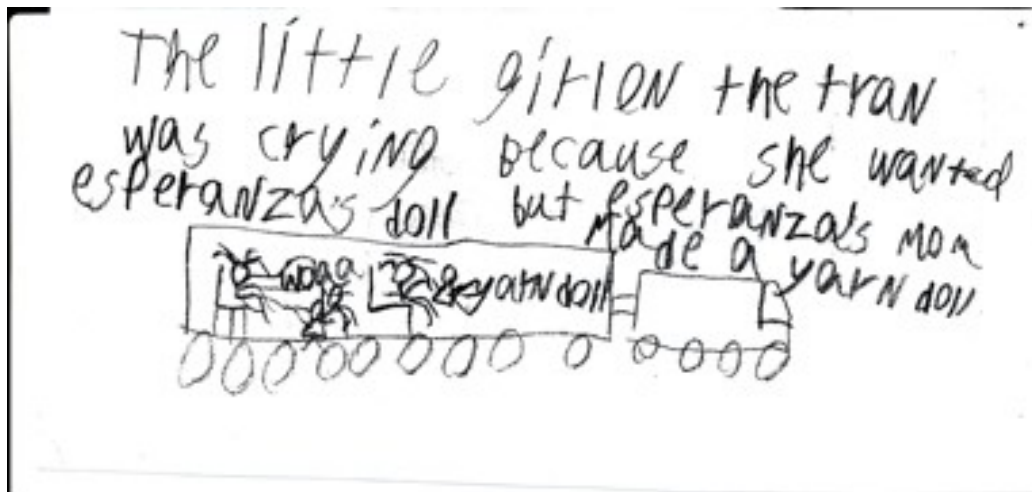 The little girl on the tran
was crying because she wanted
esperanza's doll but esperanza's mom
made a yarn doll
waa yarn doll